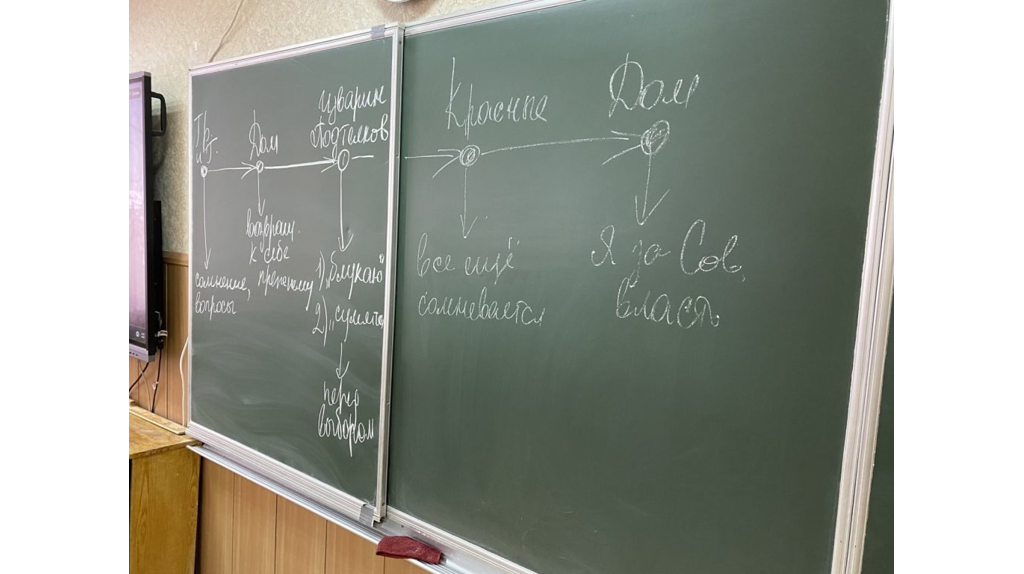 Гр.
и Г.
Дом
Изварин
Подтелков
Красные
Дом
сомнение,
вопросы
возвращ.
к себе
прежнему
1) „блукаю"
2) „сумлять
перед
выбором
все ещё
сомневается
Я за Сов.
власть